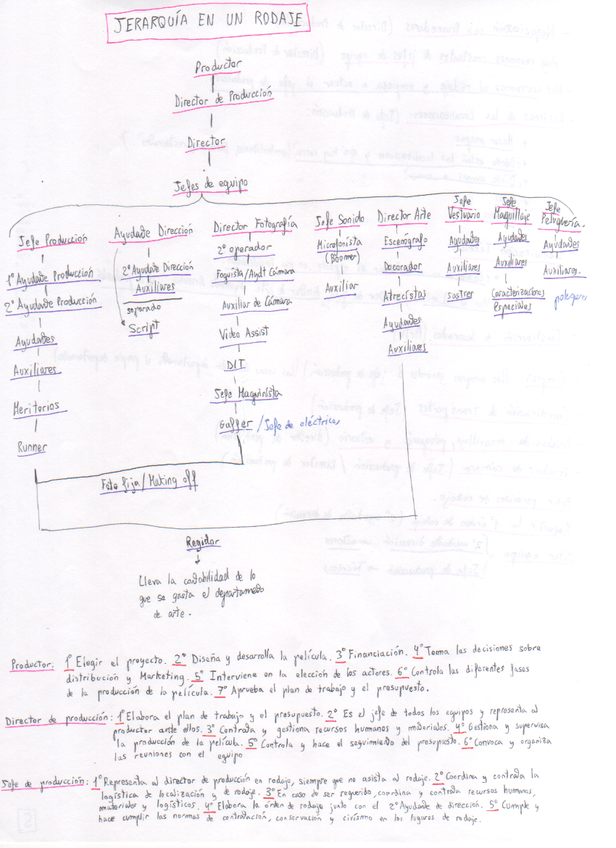 JERARQUÍA EN UN RODAJE
Productor
Director de Producción
Director
Jefes de equipo
Jefe Producción
1º Ayudante Producción
2º Ayudante Producción
Ayudantes
Auxiliares
Meritorios
Runner
Ayudante Dirección
2º Ayudante Dirección
Auxiliares
separado
Script
Director Fotografía
2º operador
Foquista/Aydt Cámara
Auxiliar de Cámara
Video Assist
DIT
Jefe Maquinista
Gaffer / Jefe de eléctricos
Jefe Sonido
Microfonista
(Boomer)
Auxiliar
Director Arte
Escenógrafo
Decorador
Atrecistas
Ayudantes
Auxiliares
Jefe
Vestuario
Ayudantes
Auxiliares
sastres
Jefe
Maquillaje
Ayudantes
Auxiliares
Caracterizaciones
especiales
Jefe
Peluquería
Ayudantes
Auxiliares
Foto fija/Making off
Regidor
Lleva la contabilidad de lo
que se gasta el departamento
de arte.
Productor: 1º Elegir el proyecto. 2º Diseña y desarrolla la película. 3º Financiación. 4º Toma las decisiones sobre
distribución y Marketing. 5º Interviene en la elección de los actores. 6º Controla las diferentes fases
de la producción de la película. 7º Aprueba el plan de trabajo y el presupuesto.
Director de producción: 1º Elabora el plan de trabajo y el presupuesto. 2º Es el jefe de todos los equipos y representa al
productor ante ellos. 3º Contrata y gestiona recursos humanos y materiales. 4º Gestiona y supervisa
la producción de la película. 5º Controla y hace el seguimiento del presupuesto. 6º Convoca y organiza
las reuniones con el equipo
Jefe de producción: 1º Representa al director de producción en rodaje, siempre que no asista al rodaje. 2º Coordina y contrata la
logística de localización y de rodaje. 3º En caso de ser requerido, coordina y contrata recursos humanos,
materiales y logísticos. 4º Elabora la órden de rodaje junto con el 2º Ayudante de dirección. 5º Cumple y
hace cumplir las normas de contratación, conservación y civismo en los lugares de rodaje.
2